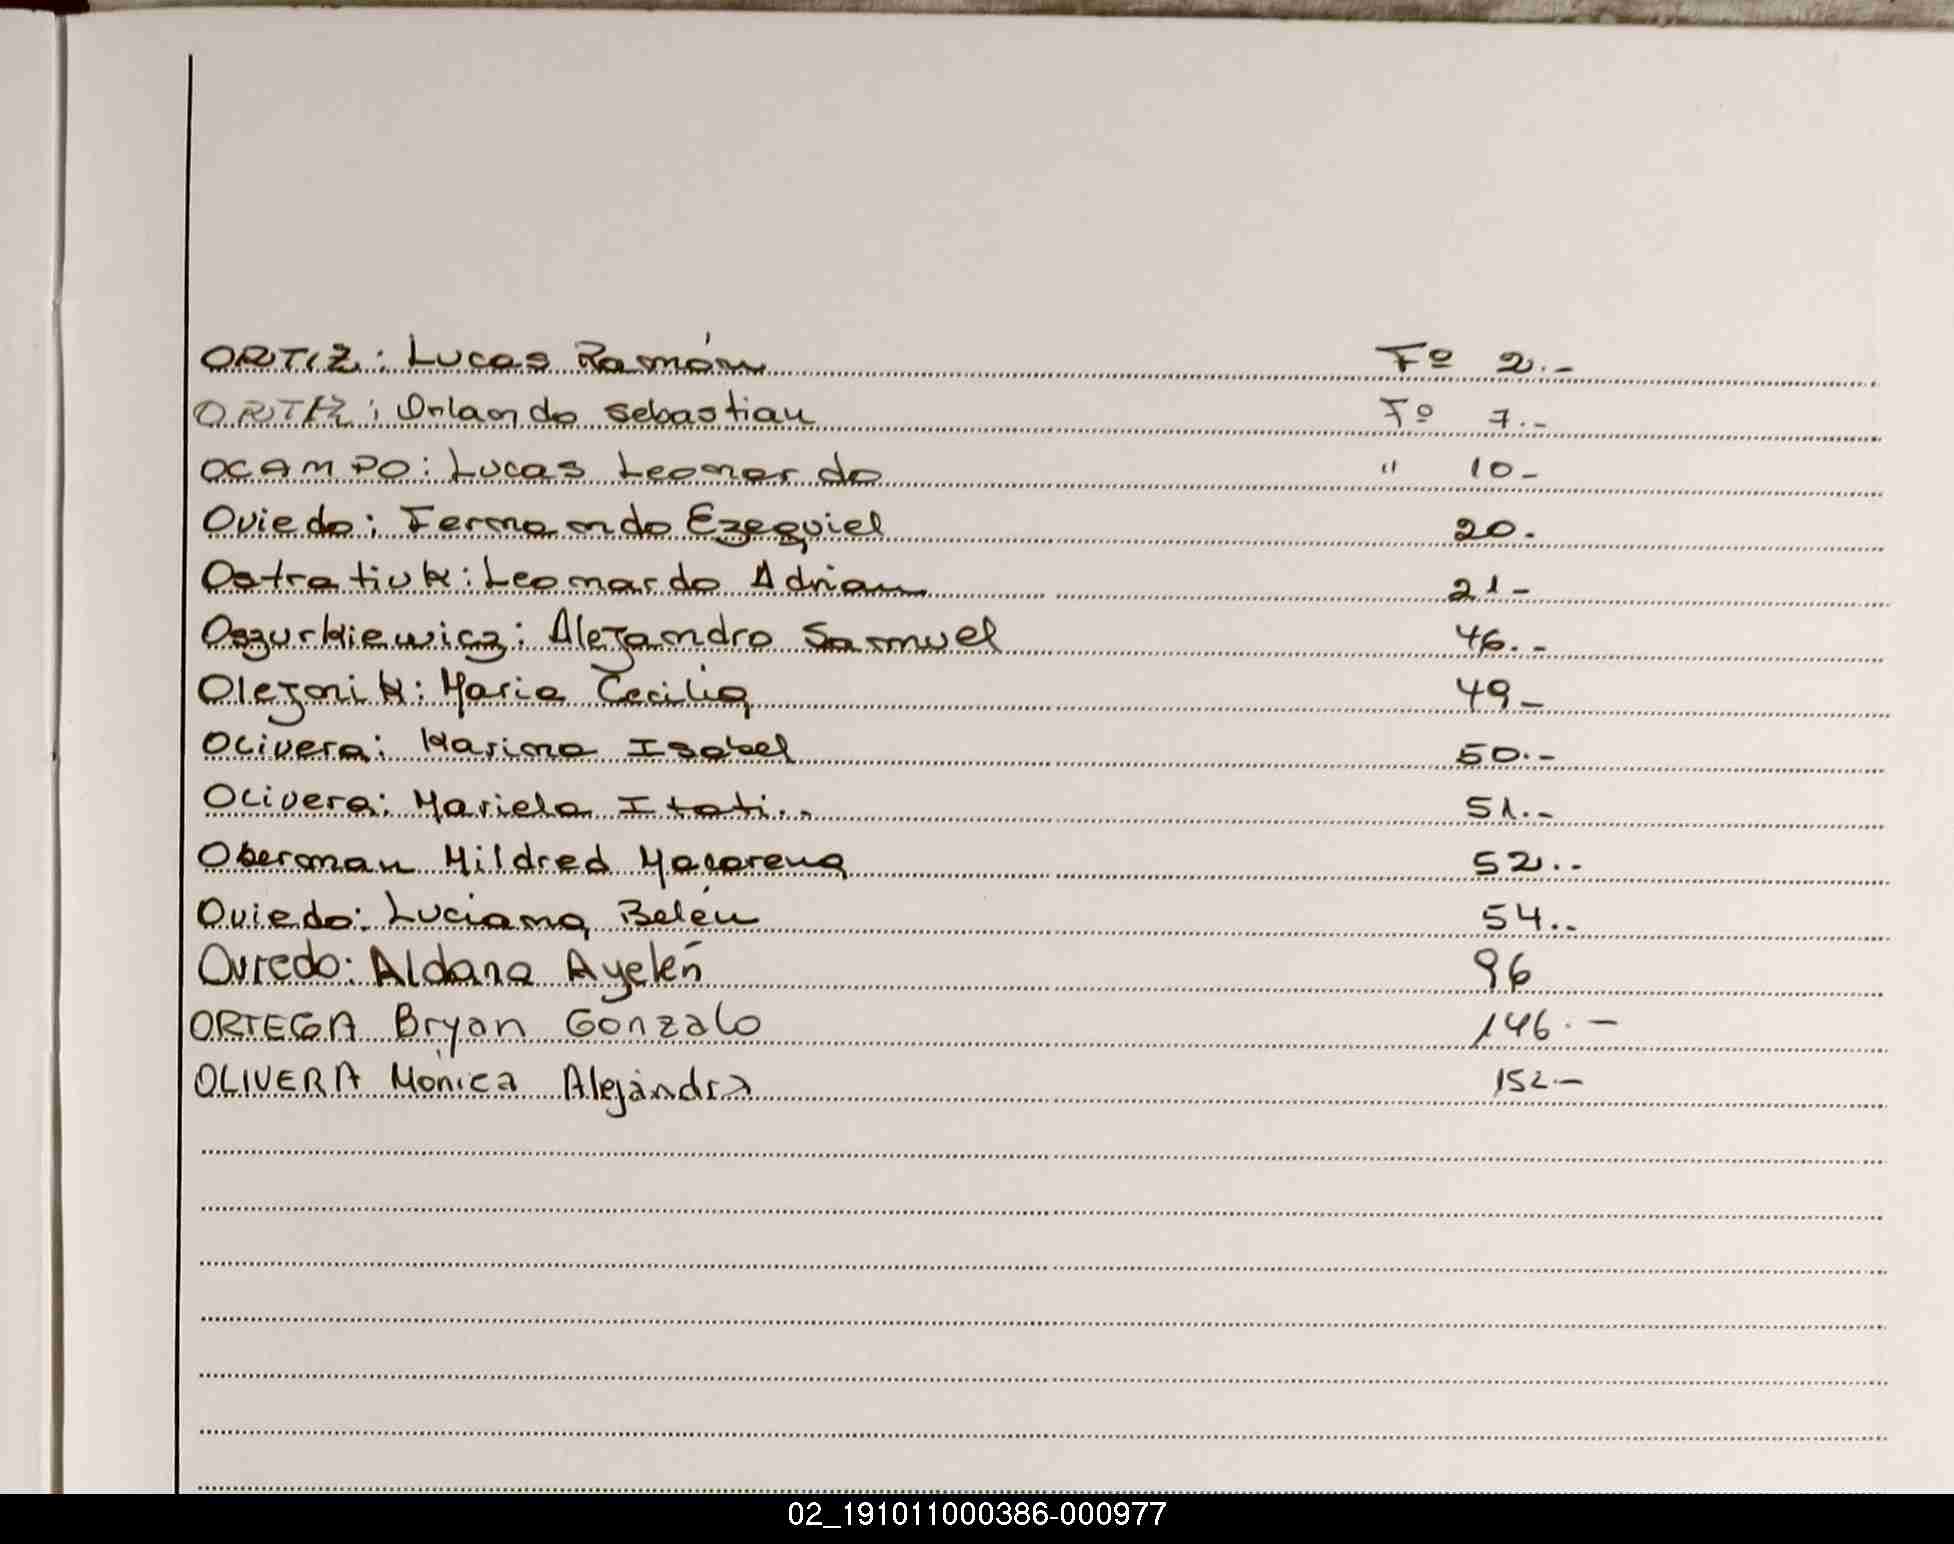 ORTIZ: Lucas Ramón Fº 2.-
ORTIZ: Orlando Sebastian Fº 7.-
OCAMPO: Lucas Leonardo " 10-
Oviedo: Fernando Ezequiel 20.
Ostratiuk: Leonardo Adrian 21-
Oszurkiewicz: Alejandro Samuel 46.-
Olejnik: Maria Cecilia 49-
Olivera: Karina Isabel 50.-
Olivera: Mariela Itati.. 51.-
Oberman Mildred Macarena 52..
Oviedo: Luciana Belén 54..
Oviedo: Aldana Ayelén 96
ORTEGA Bryan Gonzalo 146.-
OLIVERA Mónica Alejandra 152.-
02_191011000386-000977